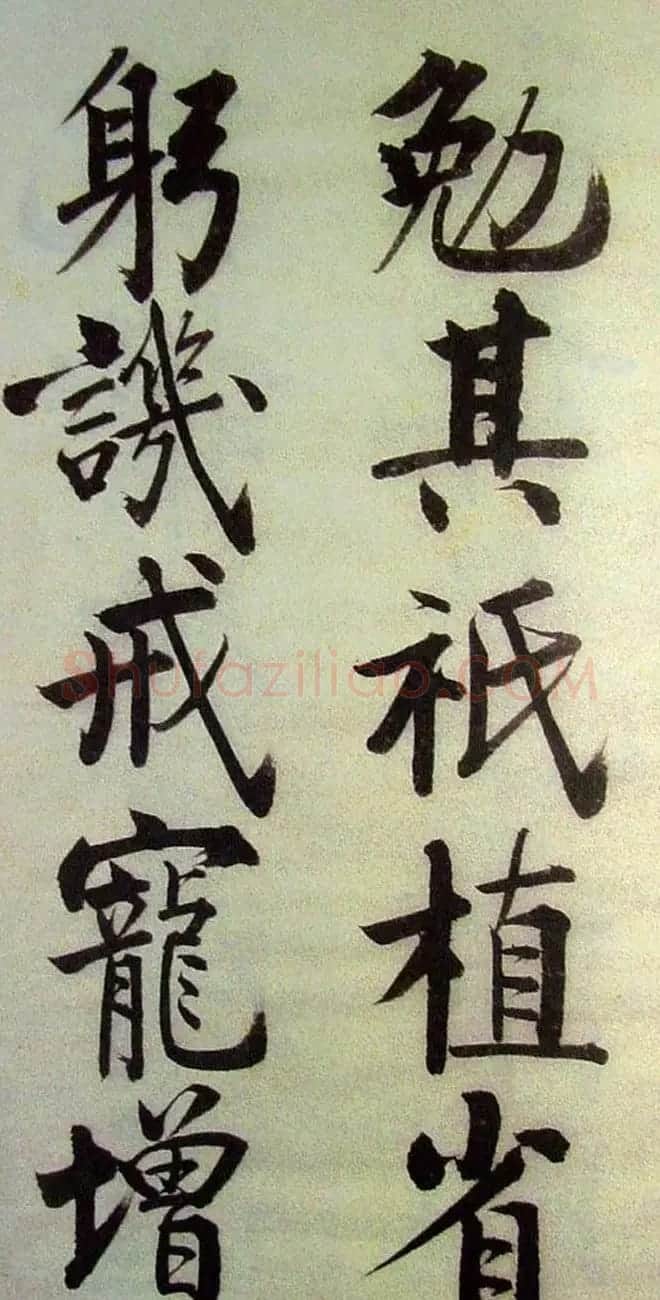 勉其祗植省
躬譏戒寵增
Shufaziliao.COM